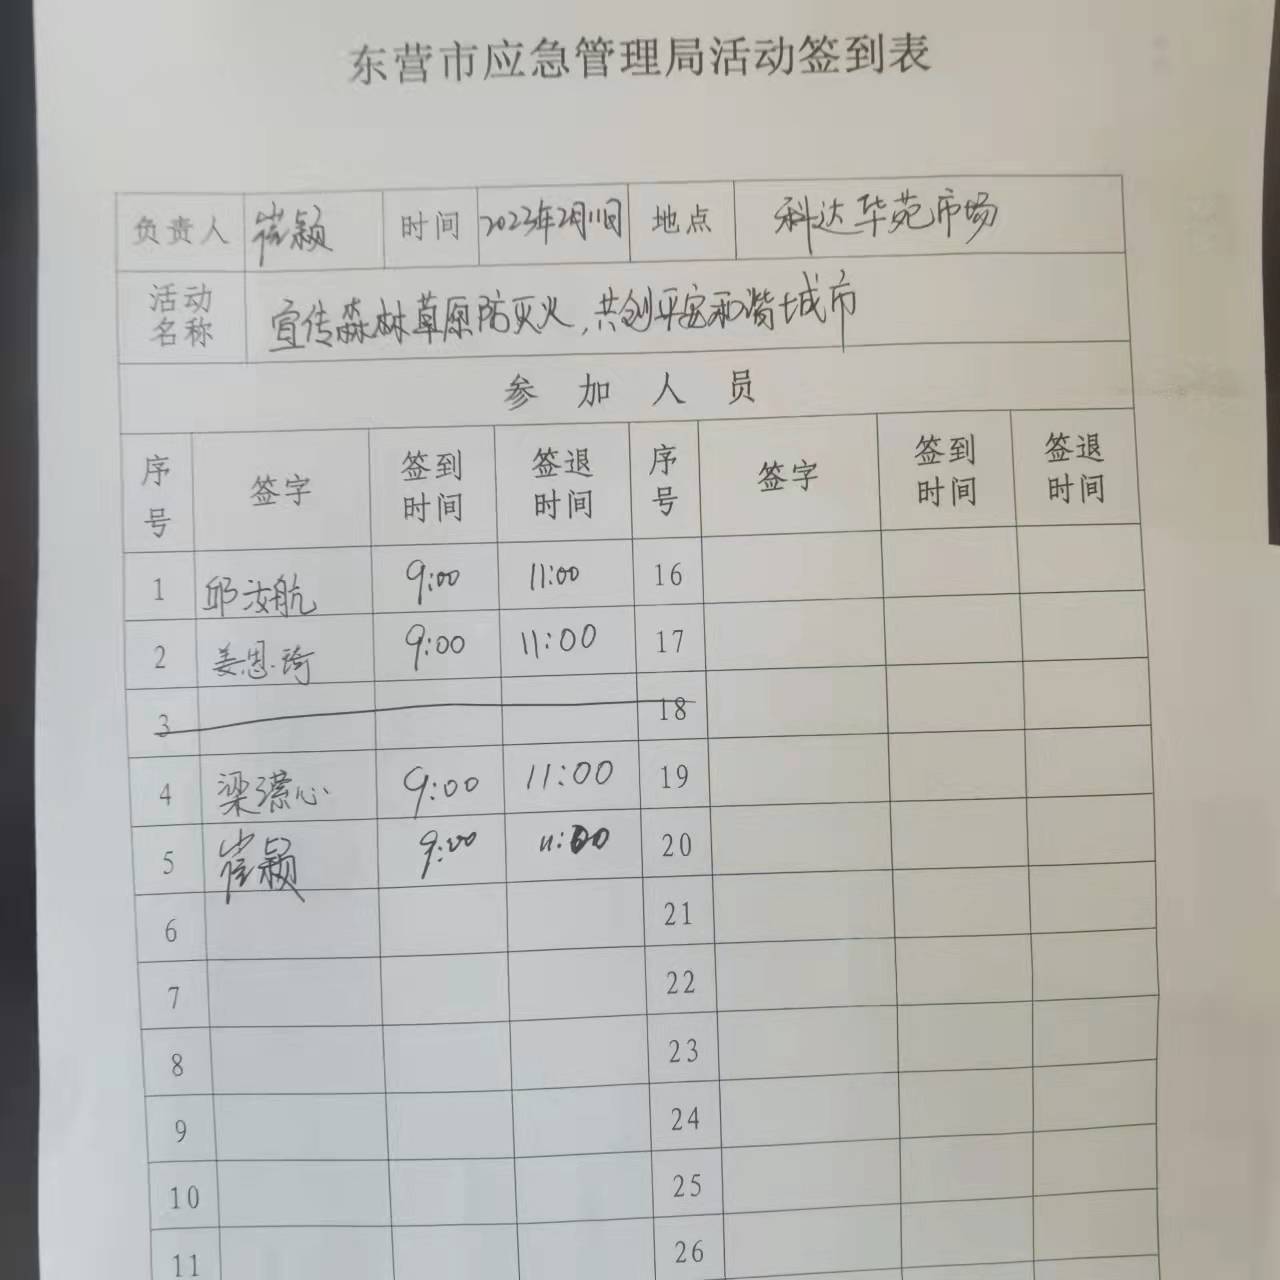 东营市应急管理局活动签到表
负责人 崔颖 时间 2023年2月11日 地点 科达华苑市场
活动名称 宣传森林草原防灭火,共创平安和谐城市
参加人员
序号 签字 签到时间 签退时间 序号 签字 签到时间 签退时间
1 邱汝航 9:00 11:00 16
2 姜思琦 9:00 11:00 17
3 18
4 梁潆心 9:00 11:00 19
5 崔颖 9:00 11:00 20
6 21
7 22
8 23
9 24
10 25
11 26